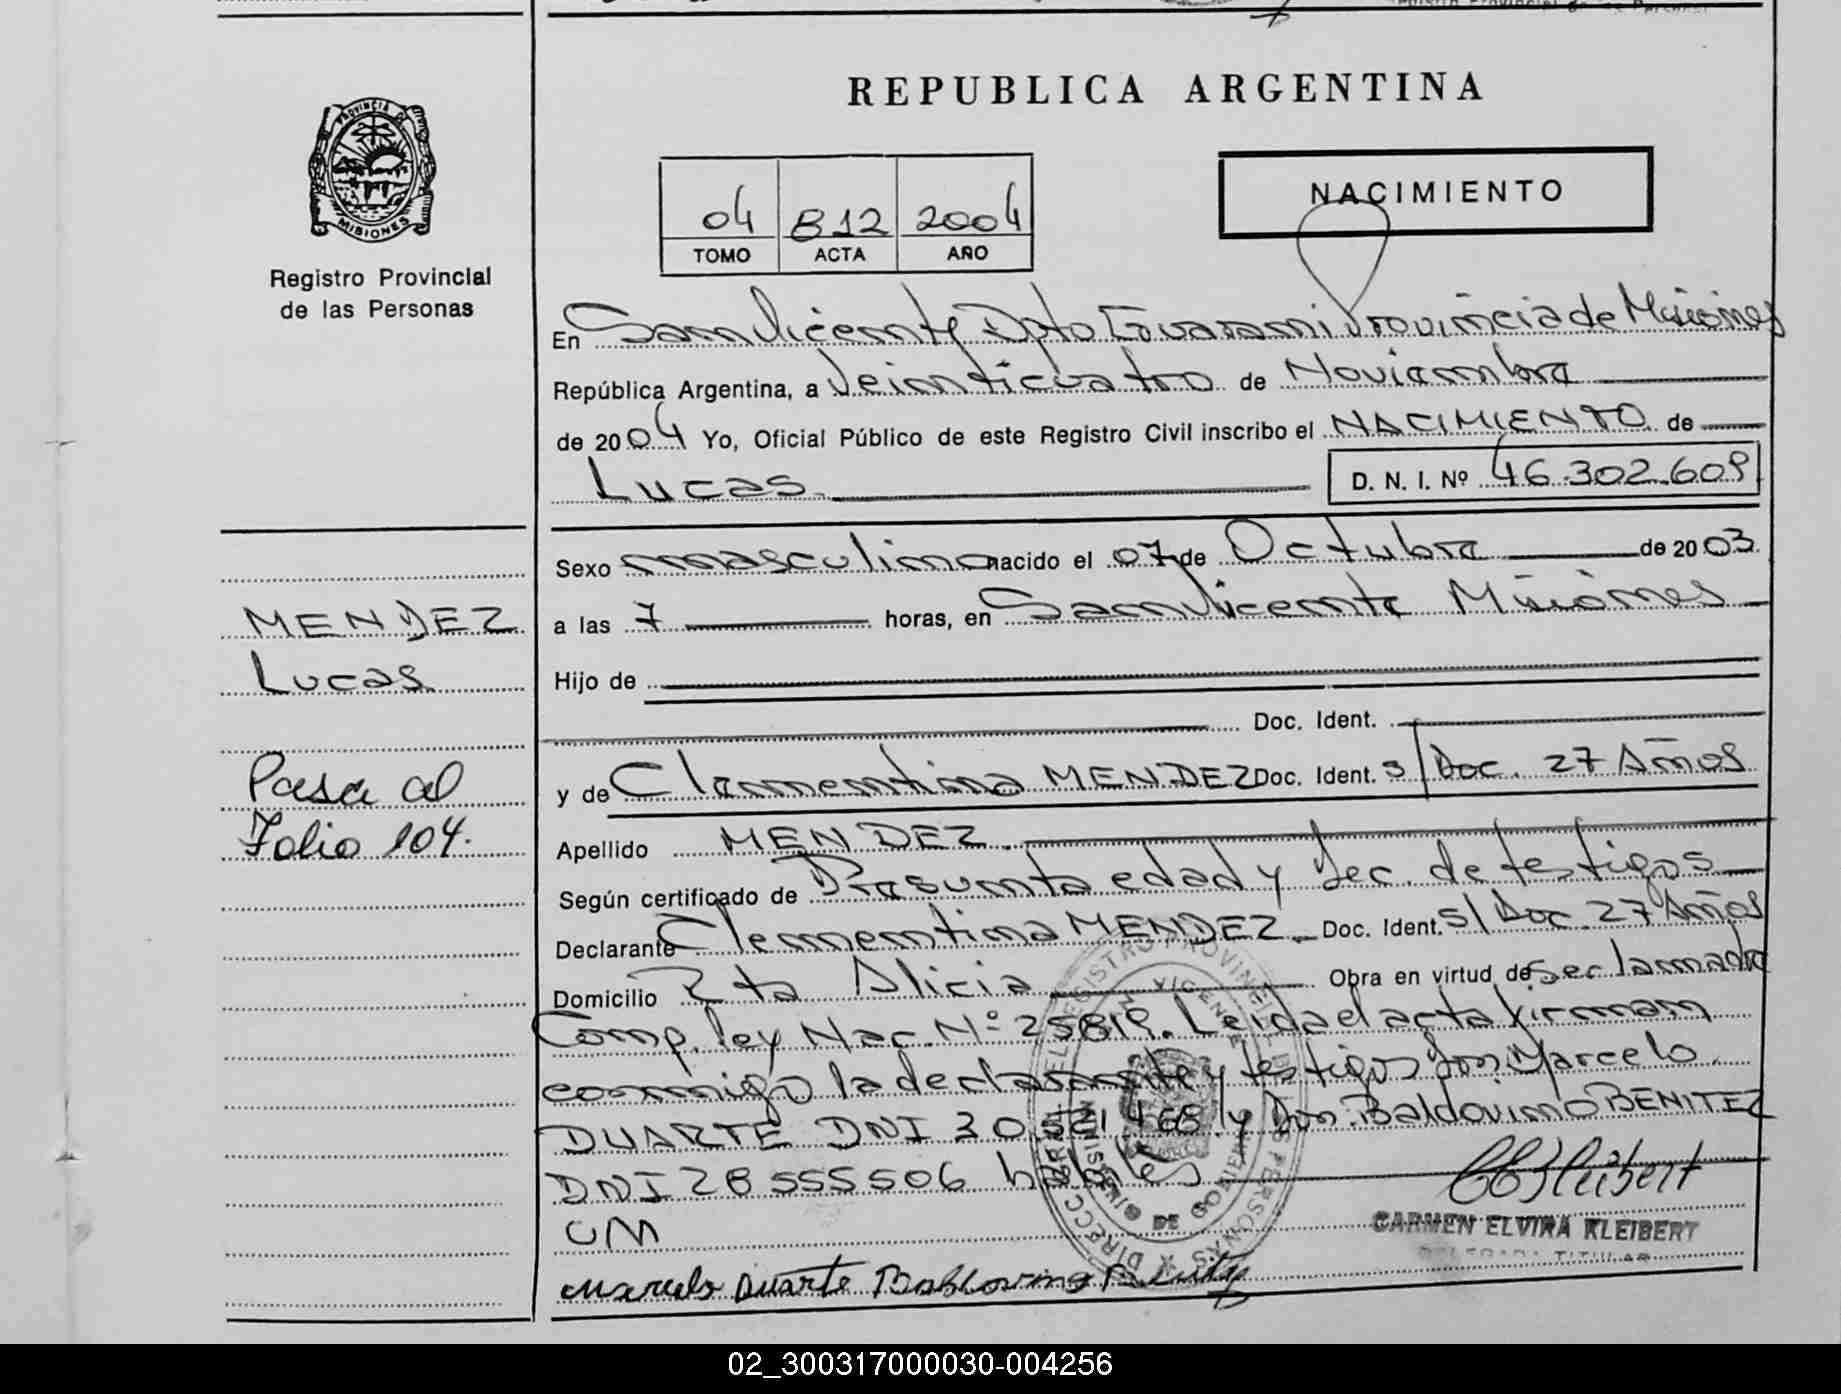 REPUBLICA ARGENTINA
PROVINCIA DE
MISIONES
Registro Provincial
de las Personas
NACIMIENTO
04 812 2004
TOMO ACTA AÑO
En San Vicente Dpto Guarani Provincia de Misiones
República Argentina, a Veinticuatro de Noviembre
de 2004 Yo, Oficial Público de este Registro Civil inscribo el NACIMIENTO de
Lucas D. N. I. Nº 46.302.609
Sexo masculino nacido el 07 de Octubre de 2003
MENDEZ
a las 7 horas, en San Vicente Misiones
Lucas
Hijo de
Doc. Ident.
Pasa al
y de Clementina MENDEZ Doc. Ident. s/Doc. 27 Años
Folio 104.
Apellido MENDEZ
Según certificado de Presunta edad y Dec. de testigos
Declarante Clementina MENDEZ Doc. Ident. s/Doc 27 Años
Domicilio Pto Alicia Obra en virtud de ser la madre
Comp. ley Nac. Nº 25819. Leida el acta firman
conmigo la declarante y testigos Don. Marcelo
DUARTE DNI 30 521 468 y Don. Baldovino BENITEZ
DNI 28 555506 habiles
CM
CARMEN ELVIRA KLEIBERT
DELEGADA TITULAR
Marcelo Duarte
02_300317000030-004256